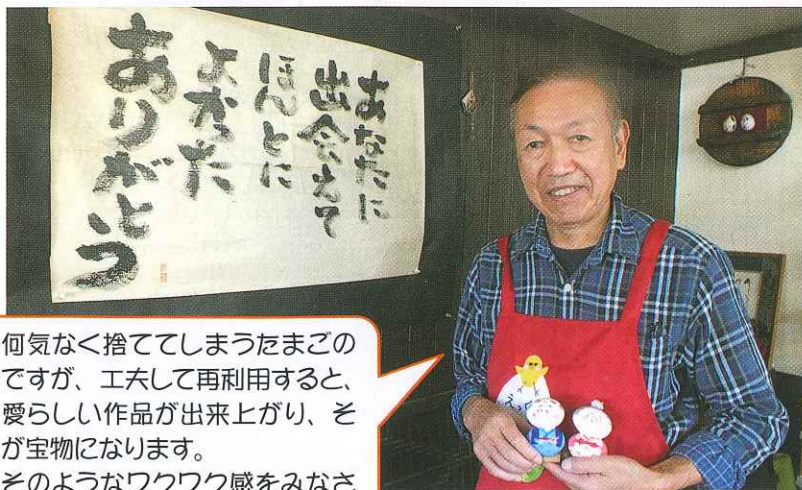 あなたに
出会えて
ほんとに
よかった
ありがとう
何気なく捨ててしまうたまごの
ですが、工夫して再利用すると、
愛らしい作品が出来上がり、そ
が宝物になります。
そのようなワクワク感をみなさ